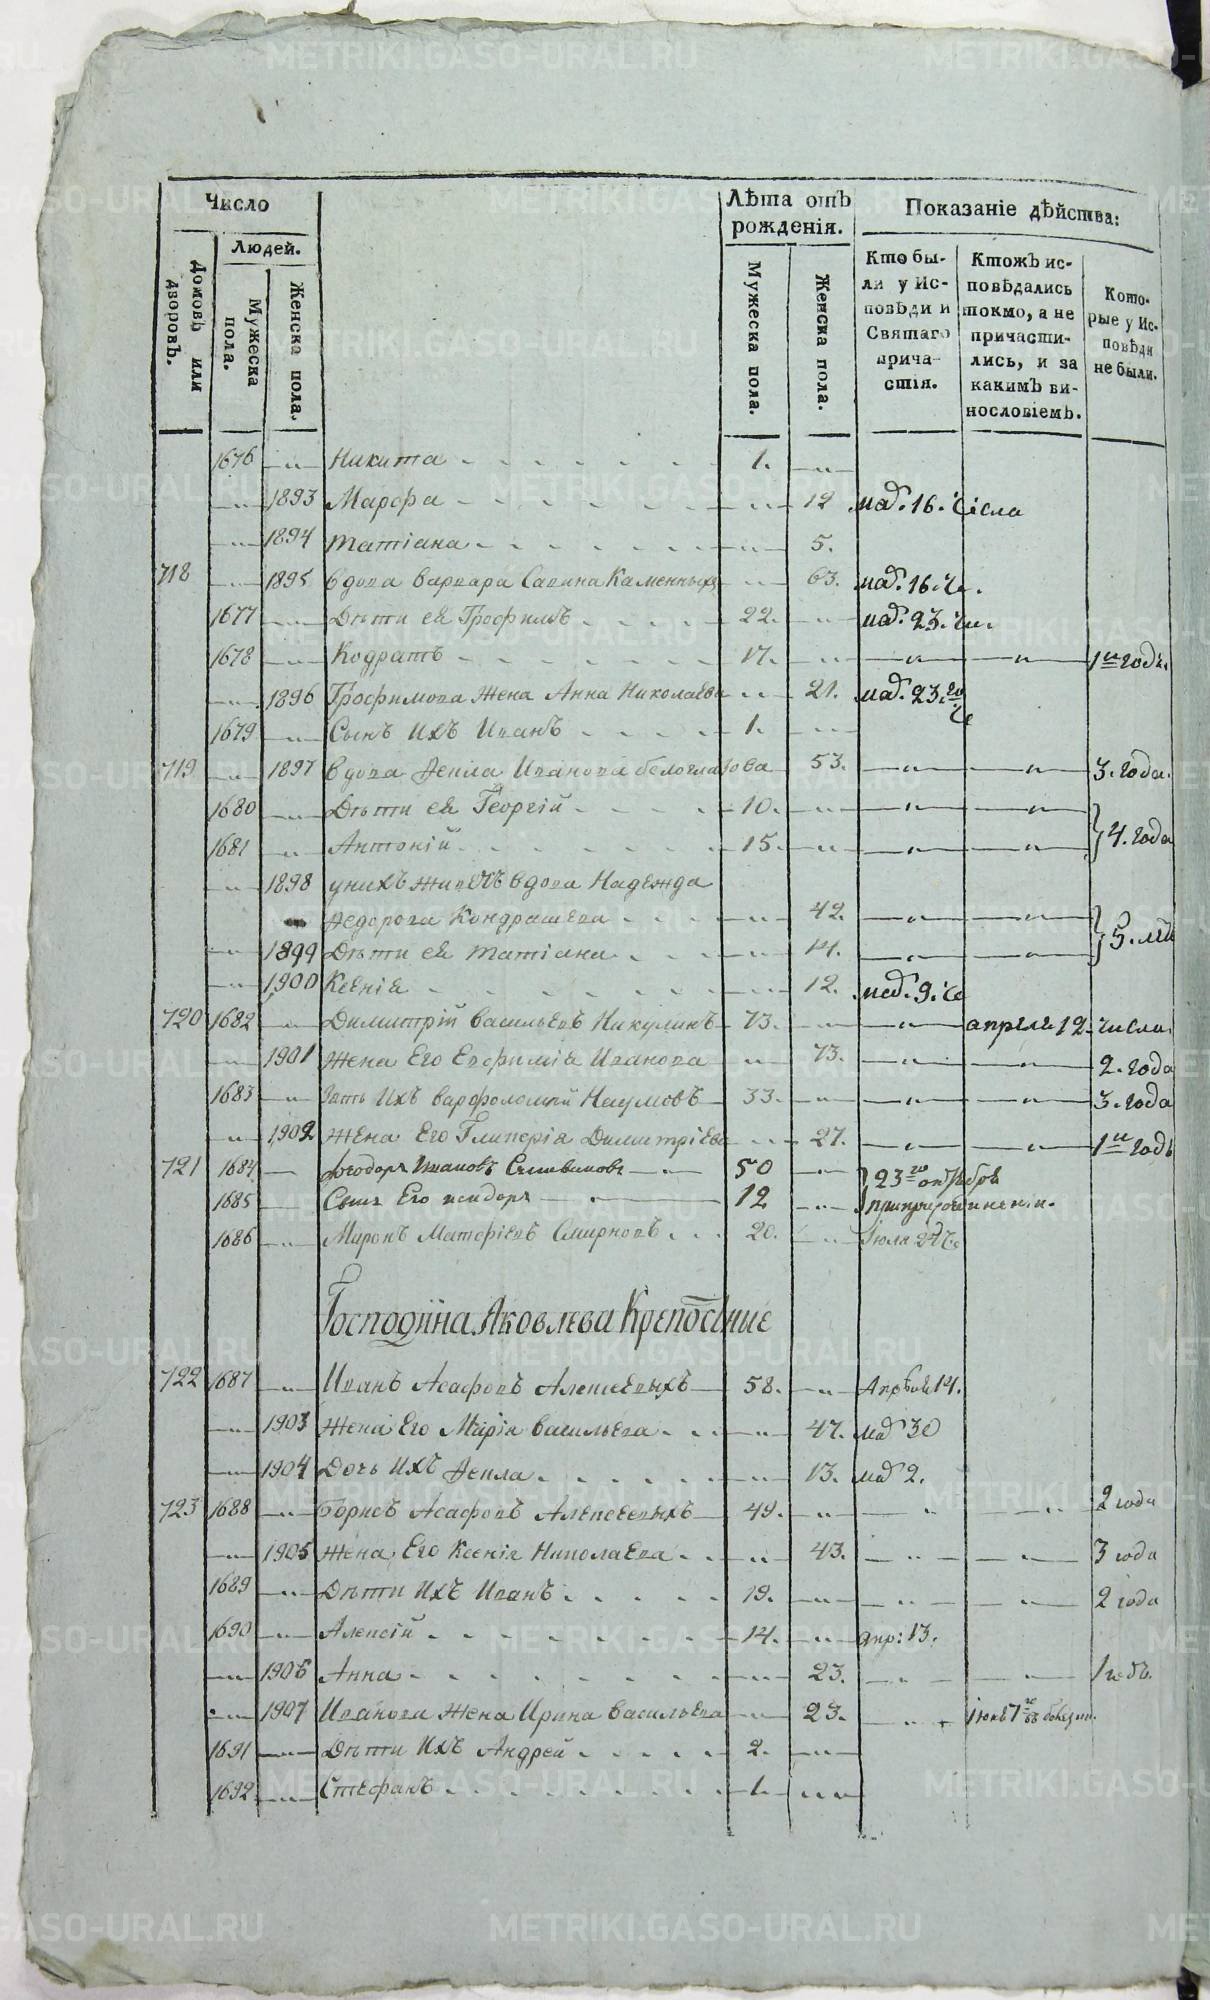 Число
Людей.
Домовъ или дворовъ.
Мужеска пола.
Женска пола.
Лѣта отъ рожденія.
Мужеска пола.
Женска пола.
Показаніе дѣйства:
Кто бы-
ли у Ис-
повѣди и
Святаго
прича-
стія.
Ктожъ ис-
повѣдались
токмо, а не
причасти-
лись, и за
какимъ ви-
нословіемъ.
Кото-
рые у Ис-
повѣди
не были.
1676 —„— Никита 1. —„—
—„— 1893 Марфа —„— 12 маѣ. 16. числа
—„— 1894 Татіана —„— 5.
718 —„— 1895 вдова варвара Савина Каменныхъ —„— 63. 16. че.
1677 —„— Дѣти ея Трофимъ 22. —„— 23. чи.
1678 —„— Кодратъ 17. —„— —„— —„— 1й годъ.
—„— 1896 Трофимова Жена Анна Николаева —„— 21. 23. го че
1679 —„— Сынъ Ихъ Иванъ 1. —„—
719 —„— 1897 вдова Ѳекла Иванова белоглазова 53. —„— —„— 3. года.
1680 —„— Дѣти ея Георгій 10. —„— —„— —„—
1681 —„— Антоній 15. —„— —„— —„— } 4. года
—„— 1898 унихъ живетъ вдова Надежда
Ѳедорова Кондрашева —„— 42. —„— —„—
—„— 1899 Дѣти ея Татіана —„— 14. —„— —„— } 5. лѣтъ
—„— 1900 Ксенія —„— 12. 9. че
720 1682 —„— Димитрій васильевъ Никулинъ 73. —„— —„— апреля 12. числа.
—„— 1901 Жена Его Евфимія Иванова —„— 73. —„— —„— 2. года
1683 —„— Зять Ихъ варфоломей Наумовъ 33. —„— —„— —„— 3. года
—„— 1902 Жена Его Гликерія Димитріева —„— 27. —„— —„— 1й годъ
721 1684 — Ѳеодоръ Ивановъ Селивановъ 50 —„— } 23го октября
1685 — Сынъ Его исидоръ 12 —„—
1686 —„— Миронъ Матфіевъ Смирновъ 20. —„— Іюля 24 ч.
Господина Яковлева Крепостные
722 1687 —„— Иванъ Асафовъ Алексеевыхъ 58. —„— Апреля 14.
—„— 1903 Жена Его Марія васильева —„— 47. 30
—„— 1904 Дочь Ихъ Ѳекла —„— 13. 2.
723 1688 —„— Борисъ Асафовъ Алексеевыхъ 49. —„— „ —„— 2 года
—„— 1905 Жена Его Ксенія Николаева —„— 43. —„— —„— 3 года
1689 —„— Дѣти Ихъ Иванъ 19. —„— —„— —„— 2 года
1690 —„— Алексій 14. —„— апр: 13.
—„— 1906 Анна —„— 23. —„— —„— 1 годъ.
—„— 1907 Иванова Жена Ирина васильева —„— 23. —„—
1691 —„— Дѣти Ихъ Андрей 2. —„—
1692 —„— Стефанъ 1. —„—